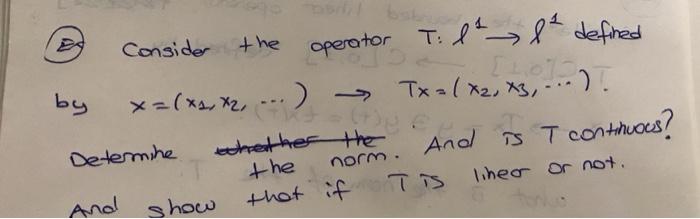 Eg Consider the operator T: l¹ → l¹ defined
by x = (x₁, x₂, ...) → Tx = (x₂, x₃, ...).
Determine whether the the norm. And is T continuous?
And show that if T is linear or not.